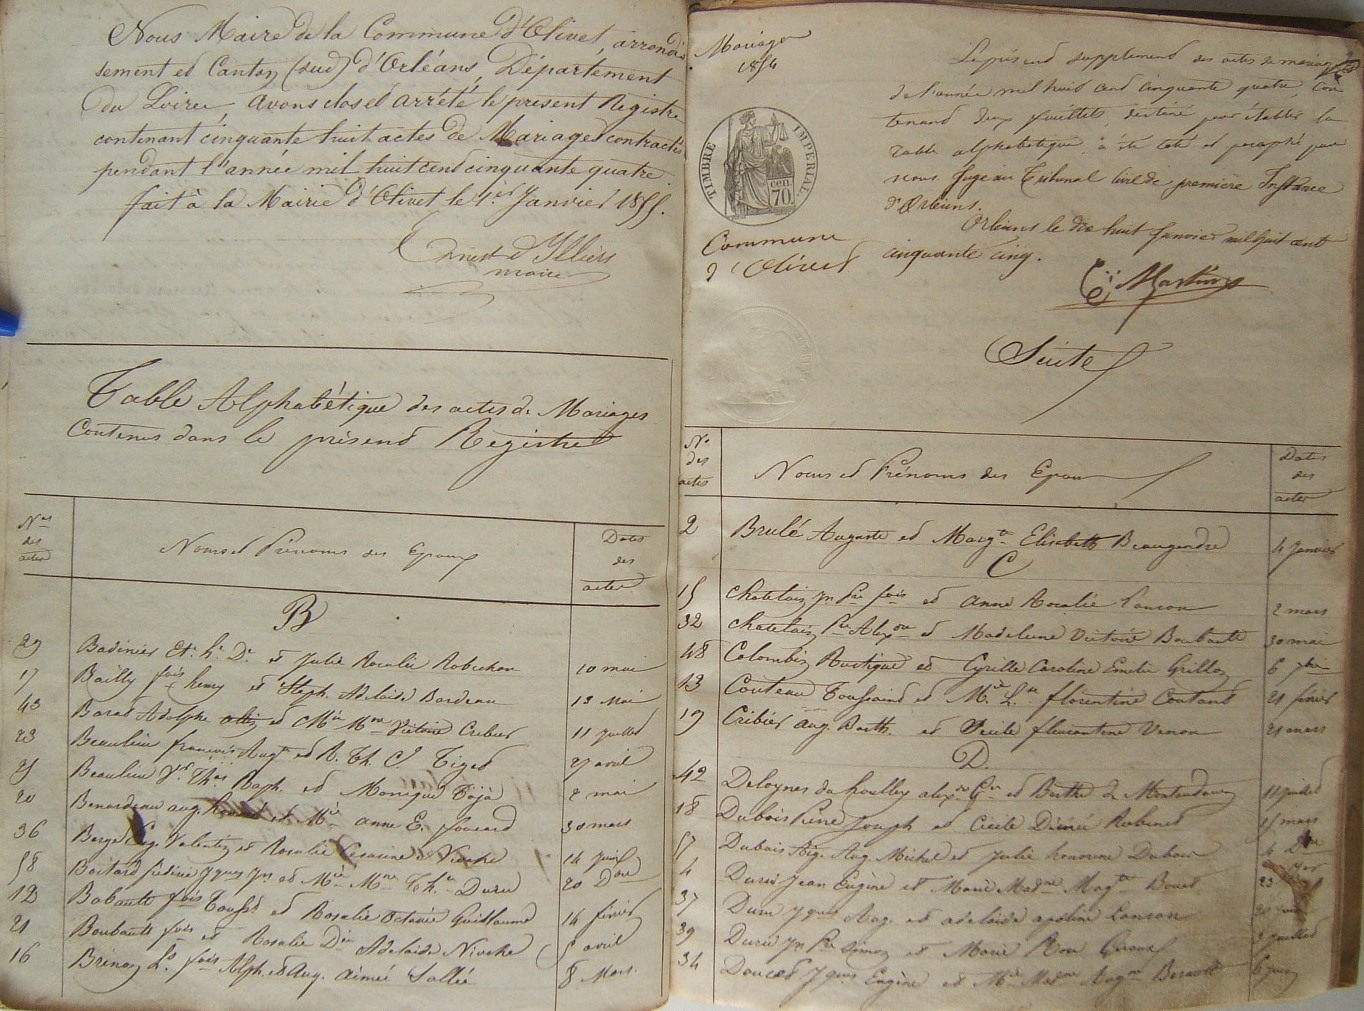 Nous Maire de la Commune d'Olivet, arrondis
sement et Canton (sud) d'Orléans, Département
du Loiret avons clos et arrêté le présent Registre
contenant cinquante huit actes de Mariages contractés
pendant l'année mil huit cent cinquante quatre
fait à la Mairie d'Olivet le 1er Janvier 1855.
Ernest d'Illiers
maire
Table Alphabétique des actes de Mariages
Contenus dans le présent Registre
Nos des actes
Noms et Prénoms des Epoux
Dates des actes
B
29 Badinier et Julie Rosalie Robichon 10 mai
17 Bailly fois henry et Steph. Adelaïde Bordeau 13 Mai
43 Baras Adolphe et Mie Victoire Cribier 11 juillet
23 Beaulieu françois Augte et R. Th. C. Tiget 27 avril
25 Beaulieu et Monique 2 mai
20 Benardeau aug. et Mie anne E. fouard 30 mars
36 Berge Eug. Valentin et Rosalie Césarine Nioche 14 juin
58 Boitard jques et Mie Duru 20 Dbre
12 Bobault fois Tousst et Rosalie Octavie Guillaume 14 février
21 Boubault fois et Rosalie Adelaide Nioche 5 avril
16 Brinon Ls fois Alph. et Aug. aimée Sallé 8 Mars.
Mariages
1854
TIMBRE IMPERIAL
70 cen.
Commune
d'Olivet
Le présent supplément des actes de mariage
de l'année mil huit cent cinquante quatre, con
tenant deux feuillets, destiné pour établir la
table alphabétique a été coté et paraphé par
nous Juge au Tribunal Civil de première Instance
d'Orléans.
Orléans le dix huit Janvier mil huit cent
cinquante cinq.
Martin
Suite
No des actes
Noms et Prénoms des Epoux
Dates des actes
2 Brulé Auguste et Margte Elisabeth Beaugendre 4 Janvier
C
15 Chatelain jn Pre fois et Anne Rosalie 2 mars
32 Chatelain Pre Alexdre et Madeleine Victoire Boubault 30 mai
48 Colombin Rustique et Cyrille Caroline Emelie Grillon 6 7bre
13 Couteau Toussaint et Mie florentine Coutant 21 février
19 Cribier aug. Barth. et Cécile florentine Venon 21 mars
D
42 Deloynes et Berthe de 11 juillet
18 Dubois Réné Joseph et Cécile Désirée Robinet 15 mars
57 Dubois Aug. Michel et Julie honorine Dubois 4 Dbre
4 Duris Jean Eugène et Marie Made Magte 23
37 Duru jques Aug. et adelaide apoline Lanson
39 Duru Jn Pre Simon et Marie Giraux 3 juillet
34 Doucet jques Eugène et Mie Made 6 juin